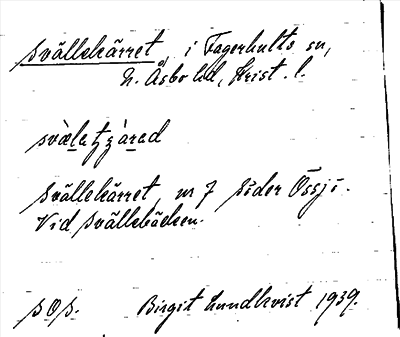 Svällekärret, i Fagerhults sn,
N. Åsbo hd, Krist. l.
Svällekärret, nr 7 Söder Össjö.
Vid Svällebäcken.
SOS. Birgit Lundkvist 1939.